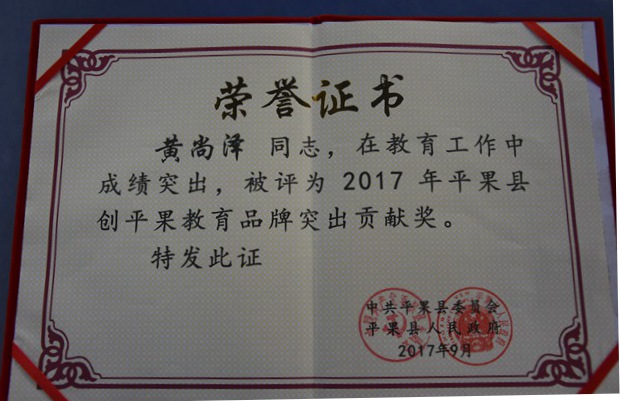 荣誉证书
黄尚泽 同志，在教育工作中
成绩突出，被评为 2017 年平果县
创平果教育品牌突出贡献奖。
特发此证
中共平果县委员会
平果县人民政府
2017年9月